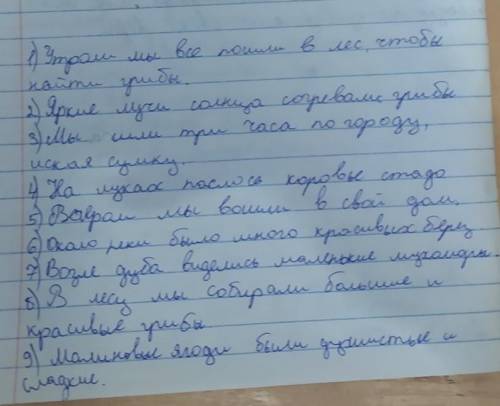 1) Утром мы все пошли в лес, чтобы
найти грибы.
2) Яркие лучи солнца согревали грибы
3) Мы шли три часа по городу,
иская сумку.
4) На лугах паслось коровье стадо
5) Вечером мы вошли в свой дом.
6) Около реки было много красивых берез
7) Возле дуба виделись маленькие мухоморы.
8) В лесу мы собирали большие и
красивые грибы
9) Малиновые ягоды были душистые и
сладкие.